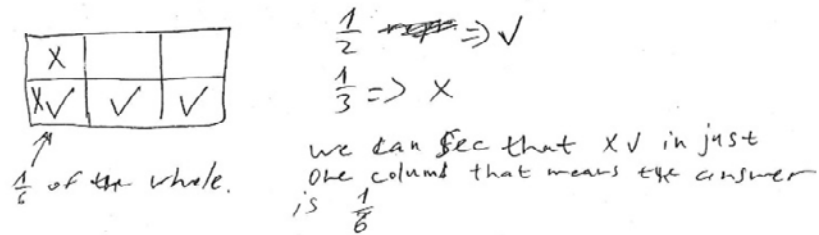 X
X✓ ✓ ✓
1/6 of the whole.
1/2 => ✓
1/3 => X
we can see that X✓ in just
one column that means the answer
is 1/6